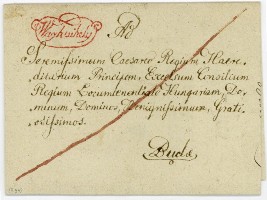 Vásárhely
Ad
Serenissimum Caesareo Regium Haere-
ditarium Principem, Excelsum Consilium
Regium Locumtenentiale Hungaricum, Do-
minum, Dominos, Benignissimum, Grati-
osissimos.
Buda